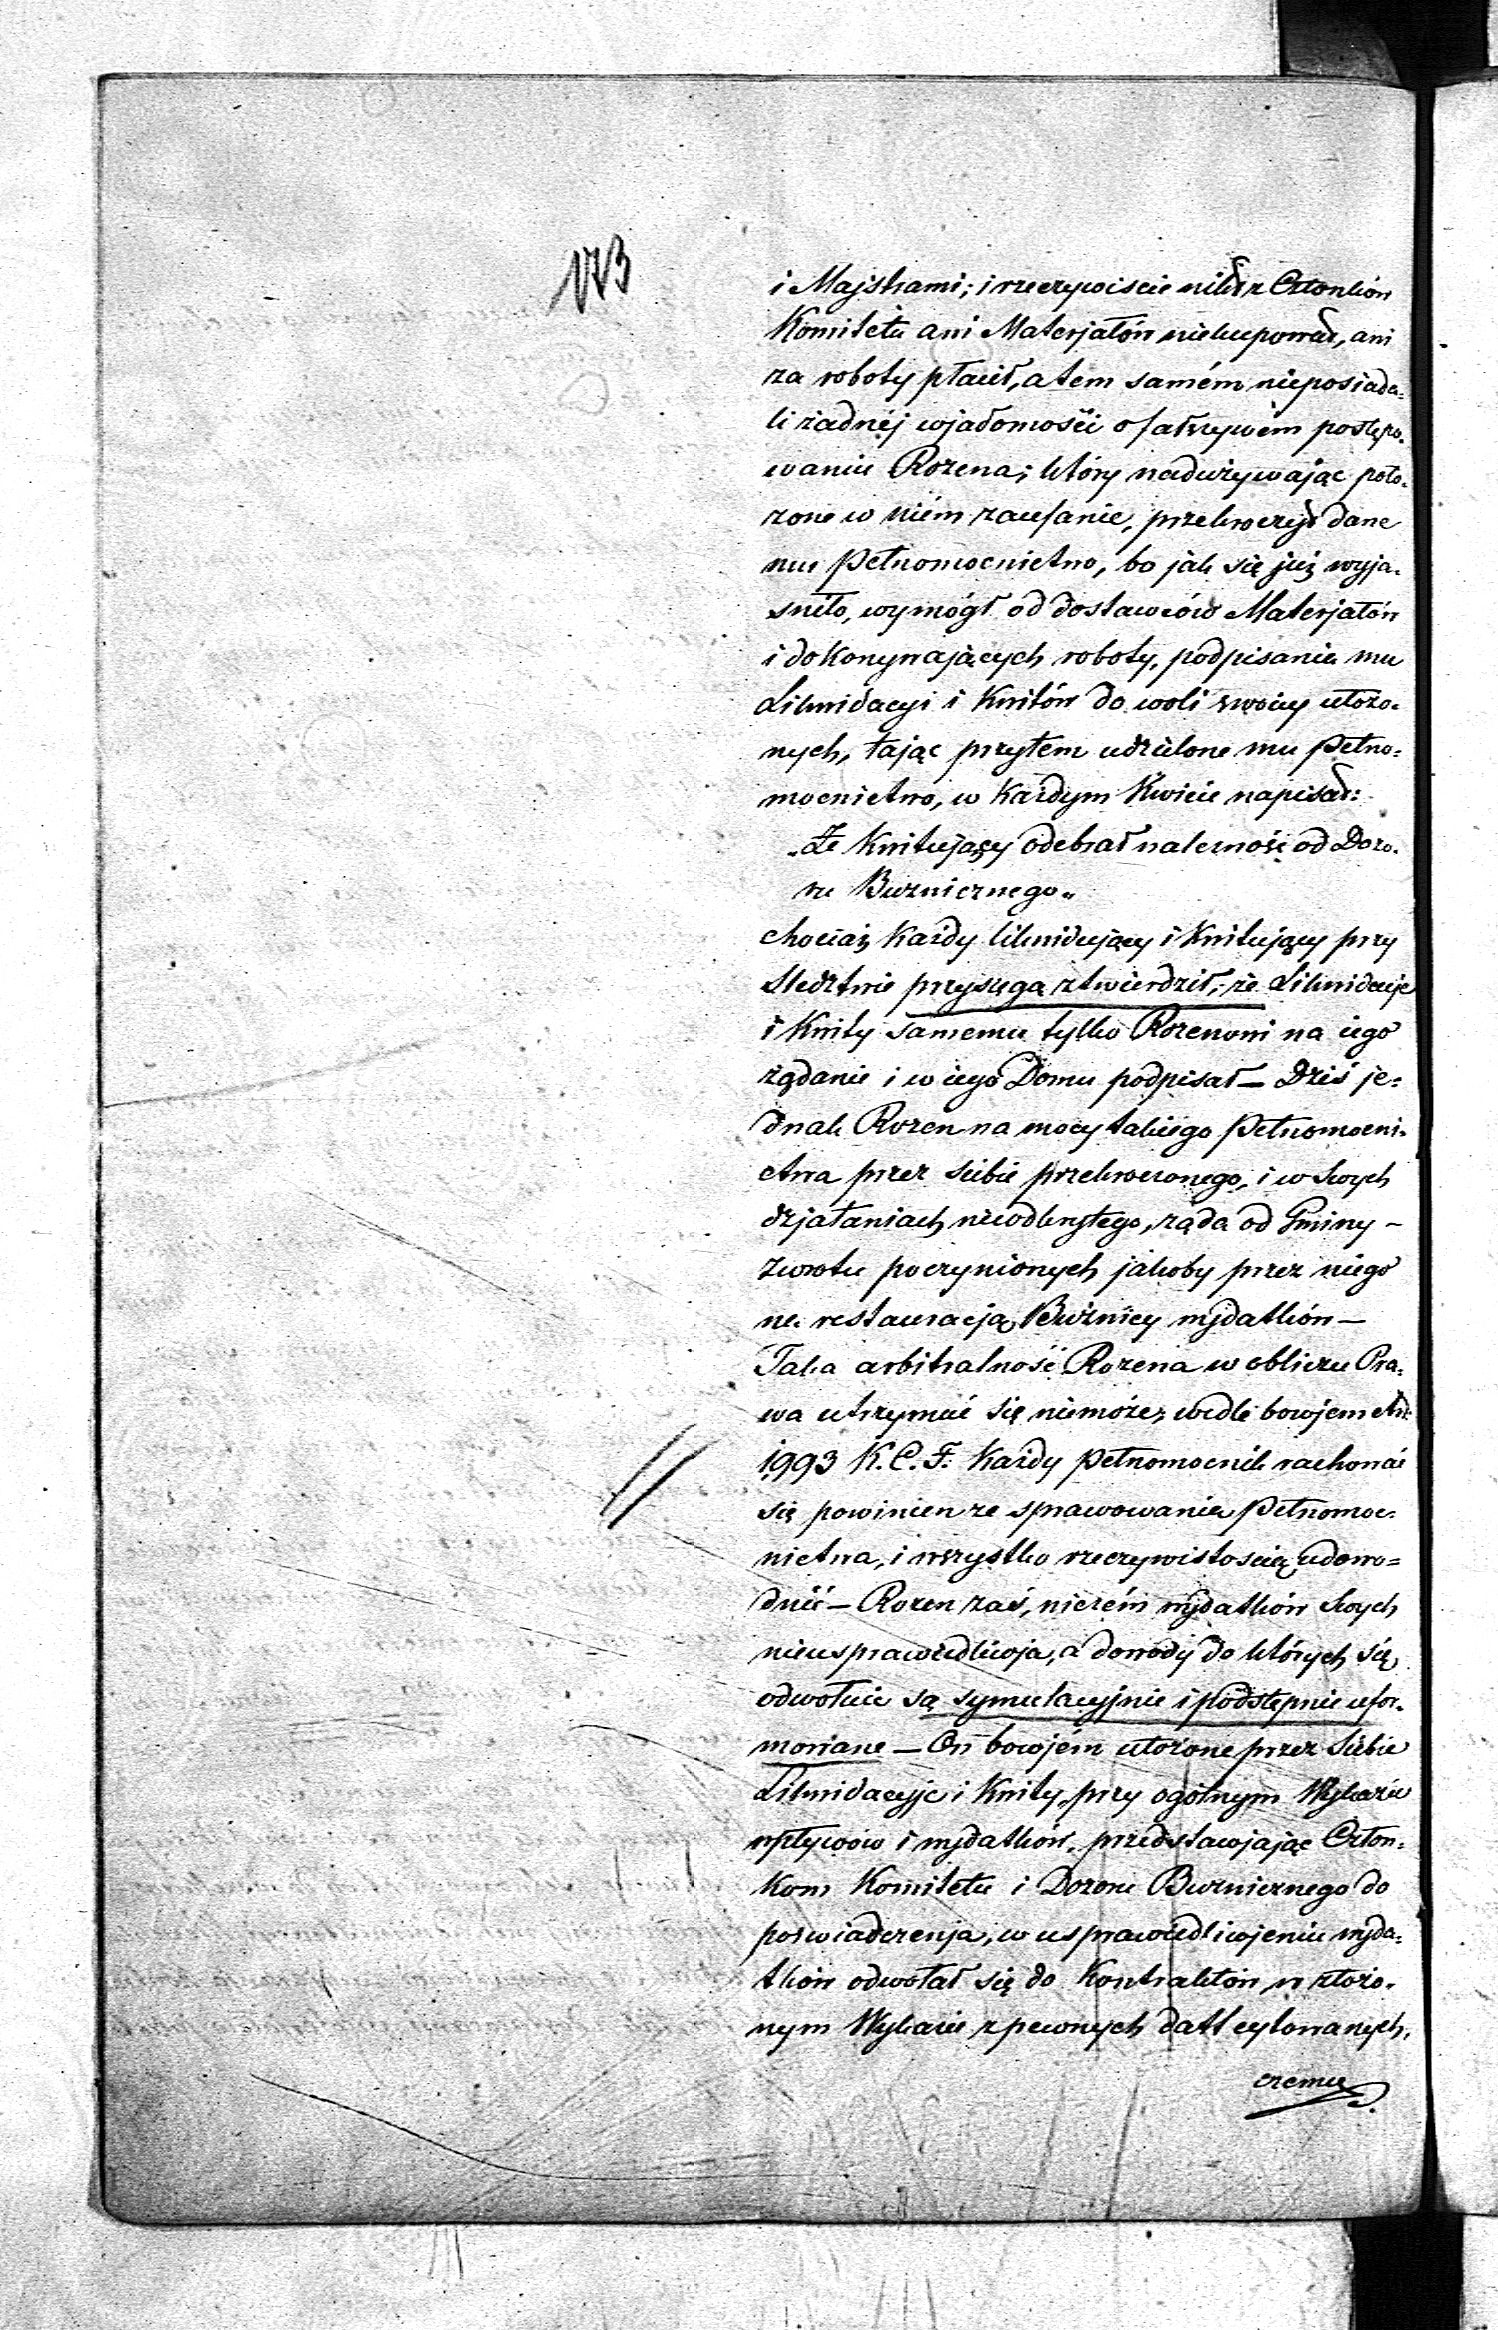 173
i Majstrami; i rzeczywiscie nikt z Członków
Komitetu ani Materjałów niekupował, ani
za roboty płacił, a tem samém nieposiada=
li żadnéj wjadomości o fałszywém postępo=
waniu Rozena; który nadużywając poło=
zone w niém zaufanie, przekroczył dane
mu Pełnomocnictwo, bo jak się już wyja=
sniło, wymógł od dostawców Materjałów
i dokonywających roboty, podpisanie mu
Likwidacyi i Kwitów do woli swoiey ułożo=
nych, tając przytem udzielone mu Pełno=
mocnictwo, w każdym Kwicie napisał:
„Że Kwitujący odebrał należność od Dozo=
ru Bużnicznego„
chociaż każdy likwidujący i Kwitujący przy
Sledztwie przysięgą ztwierdził, że Likwidacyje
i Kwity samemu tylko Rozenowi na iego
żądanie i w iego Domu podpisał — Dziś je=
dnak Rozen na mocy takiego Pełnomocni=
ctwa przez siebie przekroczonego, i w swych
dzjałaniach nieodkrytego, żąda od Gminy —
zwrotu poczynionych jakoby przez niego
na restauracją Bużnicy wydatków —
Taka arbitralność Rozena w obliczu Pra=
wa utrzymać się niemoże, wedle bowjem Art:
1993 K. C. F. Każdy Pełnomocnik rachować
się powinien ze sprawowania Pełnomoc=
nictwa, i wszystko rzeczywistością udowo=
dnić — Rozen zaś, niczém wydatków swych
nieusprawiedliwja, a dowody do których się
odwołuie są symulacyjnie i podstępnie ufor=
mowane — On bowjém ułożone przez siebie
Likwidacyje i Kwity, przy ogólnym Wykazie
wpływów i wydatków, przedstawjając Człon=
kom Komitetu i Dozoru Bużnicznego do
poświadczenja, w usprawiedliwjeniu wyda=
tków odwołał się do Kontraktów w złożo=
nym Wykazie z pewnych datt cytowanych,
czemu